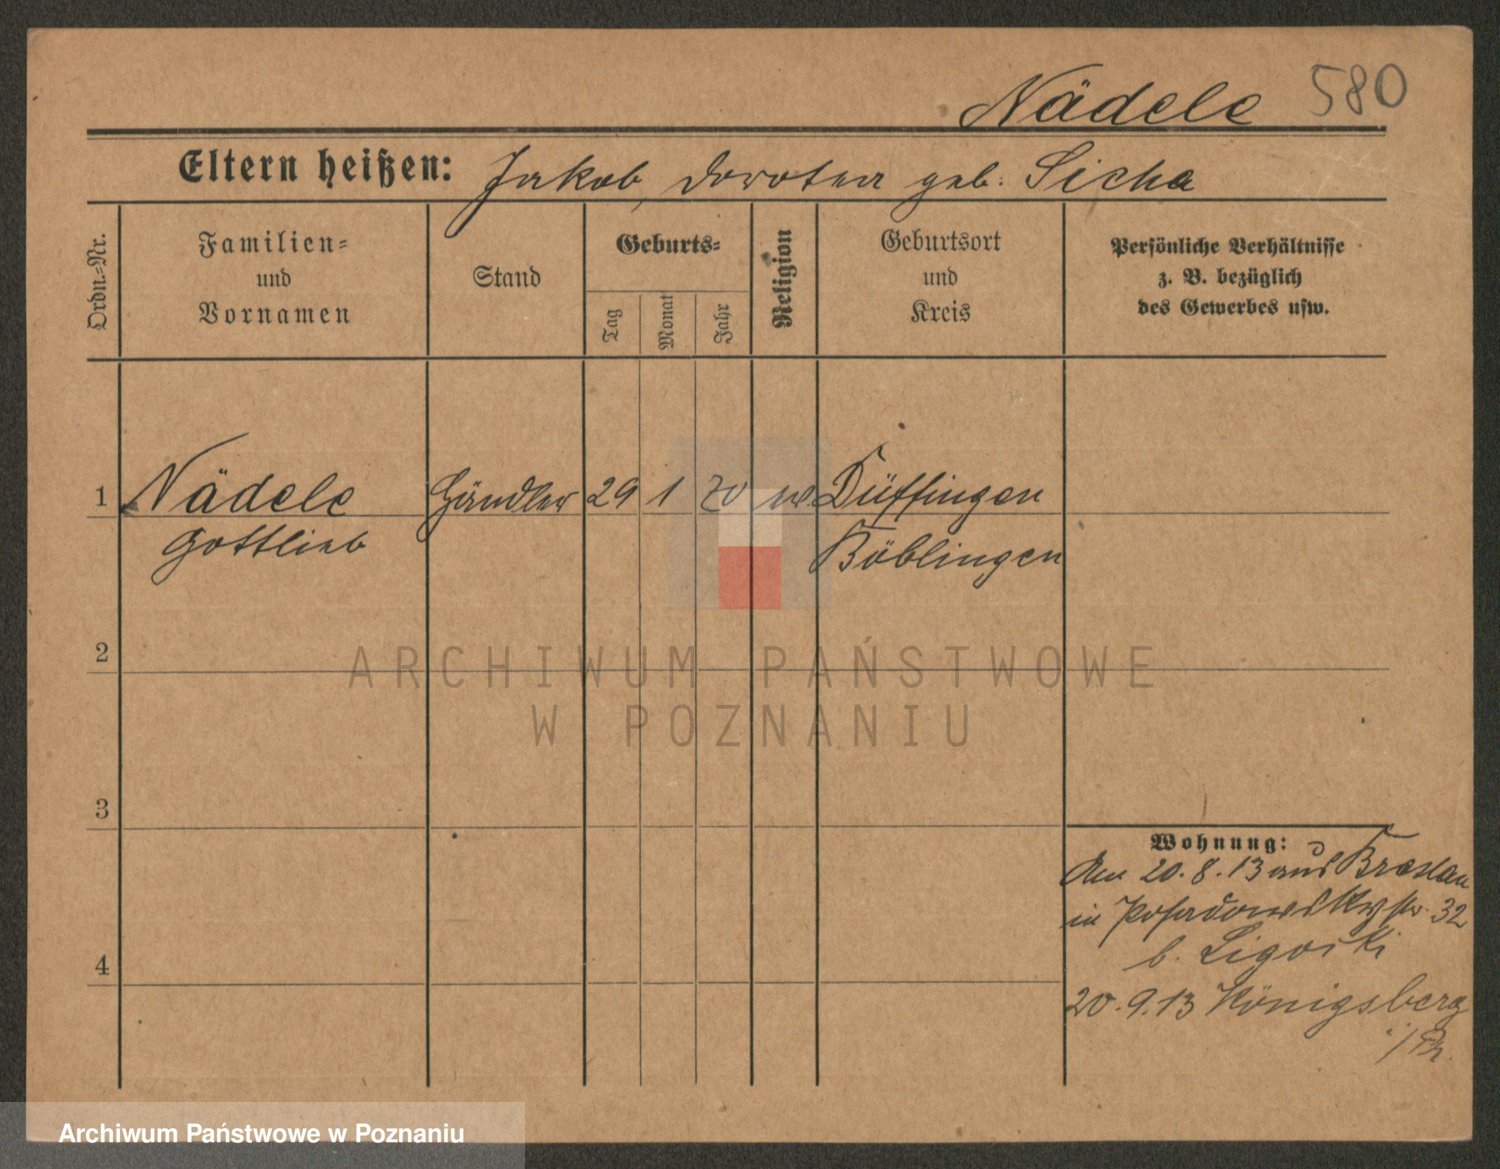 Nädele 580
Eltern heißen: Jakob, Dorotea geb. Sicha
Ordn.-Nr.
Familien-
und
Vornamen
Stand
Geburts-
Tag
Monat
Jahr
Religion
Geburtsort
und
Kreis
Persönliche Verhältnisse
z. B. bezüglich
des Gewerbes usw.
1 Nädele Händler 29 1 70 ev. Düffingen
Gottlieb Böblingen
2
3
4
Wohnung:
Am 20.8.13 aus Breslau
in Posadowskystr. 32
b. Ligocki
20.9.13 Königsberg
i/Pr.
ARCHIWUM PAŃSTWOWE
W POZNANIU
Archiwum Państwowe w Poznaniu